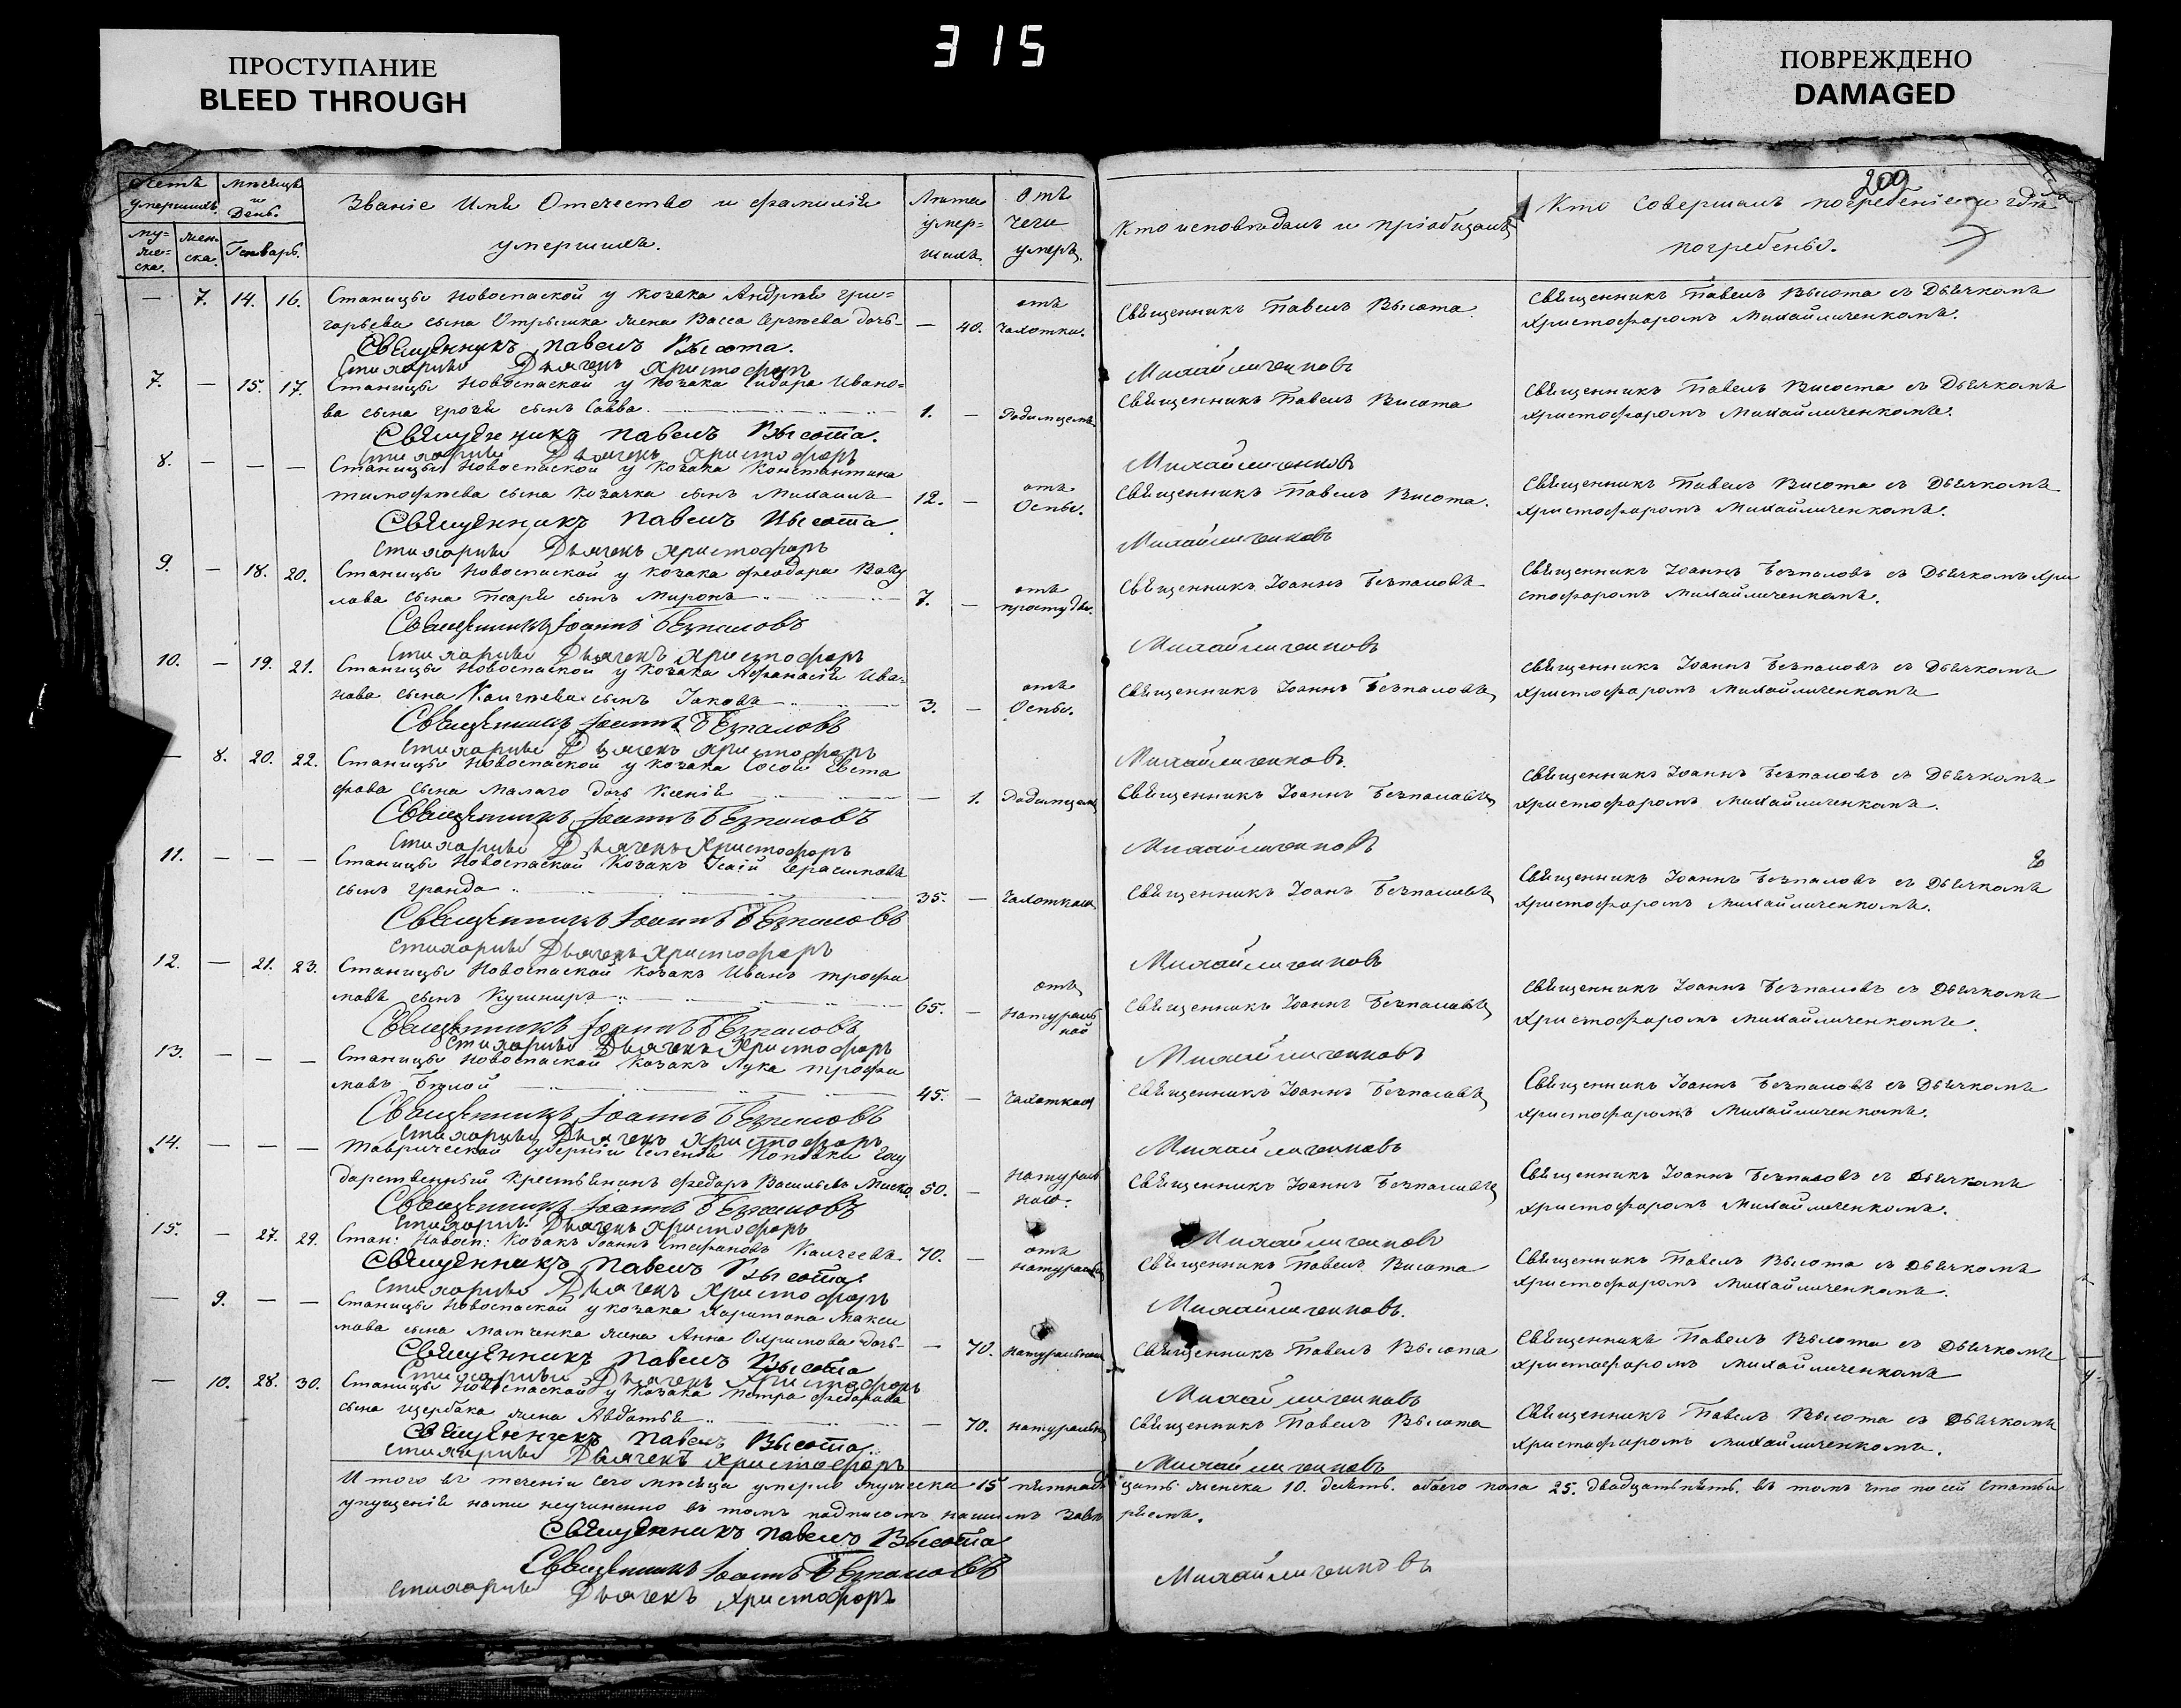 315
ПРОСТУПАНИЕ
BLEED THROUGH
ПОВРЕЖДЕНО
DAMAGED
200
Счетъ умершихъ.
Мѣсяцъ и День.
Званіе Имя Отечество и фамилія
умершихъ.
Лѣта умер-шихъ.
Отъ чего умеръ.
Кто исповѣдалъ и пріобщалъ
Кто совершалъ погребеніе и гдѣ
погребены.
му-жеска.
жен-ска.
Генварь.
— 7. 14. 16. Станицы Новоспаской у козака Андрея Гри=
горьева сына Отрышка жена Васса Сергѣева дочь — 40. отъ чахотки.
Священникъ Павелъ Высота.
Священникъ Павелъ Высота съ Дьячкомъ
Христофоромъ Михайличенкомъ.
Священникъ Павелъ Высота.
Стихарный Дьячекъ Христофоръ Михайличенковъ
7. — 15. 17. Станицы Новоспаской у козака Сидора Ивано=
ва сына Грочи сынъ Савва. 1. — Родимцемъ
Священникъ Павелъ Висота
Священникъ Павелъ Висота съ Дьячкомъ
Христофоромъ Михайличенкомъ.
Священникъ Павелъ Высота.
Стихарный Дьячекъ Христофоръ Михайличенковъ
8. — — — Станицы Новоспаской у козака Константина
Тимофѣева сына Козачка сынъ Михаилъ 12. — отъ Оспы.
Священникъ Павелъ Висота.
Священникъ Павелъ Висота съ Дьячкомъ
Христофоромъ Михайличенкомъ.
Священникъ Павелъ Высота
Стихарный Дьячекъ Христофоръ Михайличенковъ
9. — 18. 20. Станицы Новоспаской у козака Феодора Ваку
лова сына сынъ Миронъ 7. — отъ простуды.
Священникъ Іоаннъ Безпаловъ
Священникъ Іоаннъ Безпаловъ съ Дьячкомъ Хри
стофоромъ Михайличенкомъ.
Священникъ Іоаннъ Безпаловъ
Стихарный Дьячекъ Христофоръ Михайличенковъ
10. — 19. 21. Станицы Новоспаской у козака Афанасія Ива=
нова сына Калчѣева сынъ Іаковъ 3. — отъ Оспы.
Священникъ Іоаннъ Безпаловъ
Священникъ Іоаннъ Безпаловъ съ Дьячкомъ
Христофоромъ Михайличенкомъ
Священникъ Іоаннъ Безпаловъ
Стихарный Дьячекъ Христофоръ Михайличенковъ.
— 8. 20. 22. Станицы Новоспаской у козака Сосоя Евста
фова сына Малаго дочь Ксенія — 1. Родимцемъ
Священникъ Іоаннъ Безпаловъ
Священникъ Іоаннъ Безпаловъ съ Дьячкомъ
Христофоромъ Михайличенкомъ.
Священникъ Іоаннъ Безпаловъ
Стихарный Дьячекъ Христофоръ Михайличенковъ
11. — — — Станицы Новоспаской Козакъ Исаій Герасимовъ
сынъ Гранда 35. — Чахоткою
Священникъ Іоанъ Безпаловъ
Священникъ Іоаннъ Безпаловъ съ Дьячкомъ
Христофоромъ Михайличенкомъ.
Священникъ Іоаннъ Безпаловъ
Стихарный Дьячекъ Христофоръ Михайличенковъ
12. — 21. 23. Станицы Новоспаской козакъ Иванъ Трофи
мовъ сынъ Кушниръ 65. — отъ натураль ной
Священникъ Іоаннъ Безпаловъ
Священникъ Іоаннъ Безпаловъ съ Дьячкомъ
Христофоромъ Михайличенкомъ.
Священникъ Іоаннъ Безпаловъ
Стихарный Дьячекъ Христофоръ Михайличенковъ
13. — — — Станицы Новоспаской Козакъ Лука Трофи
мовъ 45. — Чахоткою
Священникъ Іоаннъ Безпаловъ
Священникъ Іоаннъ Безпаловъ съ Дьячкомъ
Христофоромъ Михайличенкомъ.
Священникъ Іоаннъ Безпаловъ
Стихарный Дьячекъ Христофоръ Михайличенковъ
14. — — — Таврической Губерніи Селенія Поповки Госу
дарственный Крестьянинъ Федоръ Васильевъ Миско 50. — натураль ною.
Священникъ Іоаннъ Безпаловъ
Священникъ Іоаннъ Безпаловъ съ Дьячкомъ
Христофоромъ Михайличенкомъ.
Священникъ Іоаннъ Безпаловъ
Стихарный Дьячекъ Христофоръ Михайличенковъ
15. — 27. 29. Стан: Новосп: Козакъ Іоаннъ Стефановъ Калчеевъ 70. — отъ натуральн
Священникъ Павелъ Висота
Священникъ Павелъ Высота съ Дьячкомъ
Христофоромъ Михайличенкомъ.
Священникъ Павелъ Высота.
Стихарный Дьячекъ Христофоръ Михайличенковъ.
— 9. — — Станицы Новоспаской у козака Харитона Макси
мова сына Мамченка жена Анна Охримова дочь — 70. натуральною
Священникъ Павелъ Высота
Священникъ Павелъ Высота съ Дьячкомъ
Христофоромъ Михайличенкомъ
Священникъ Павелъ Высота
Стихарный Дьячекъ Христофоръ Михайличенковъ
— 10. 28. 30. Станицы Новоспаской у козака Петра Федорова
сына Щербака жена Авдотья — 70. натуральн
Священникъ Павелъ Высота
Священникъ Павелъ Высота съ Дьячкомъ
Христофоромъ Михайличенкомъ.
Священникъ Павелъ Высота.
Стихарный Дьячекъ Христофоръ Михайличенковъ
Итого въ теченіи сего мѣсяца умерло мужеска 15 пятнадцать женска 10. десять. обоего пола 25. двадцать пять. въ томъ что по сей статьи
упущеній нами неучиненно въ томъ подписомъ нашимъ завѣ ряемъ.
Священникъ Павелъ Высота
Священникъ Іоаннъ Безпаловъ
Стихарный Дьячекъ Христофоръ Михайличенковъ